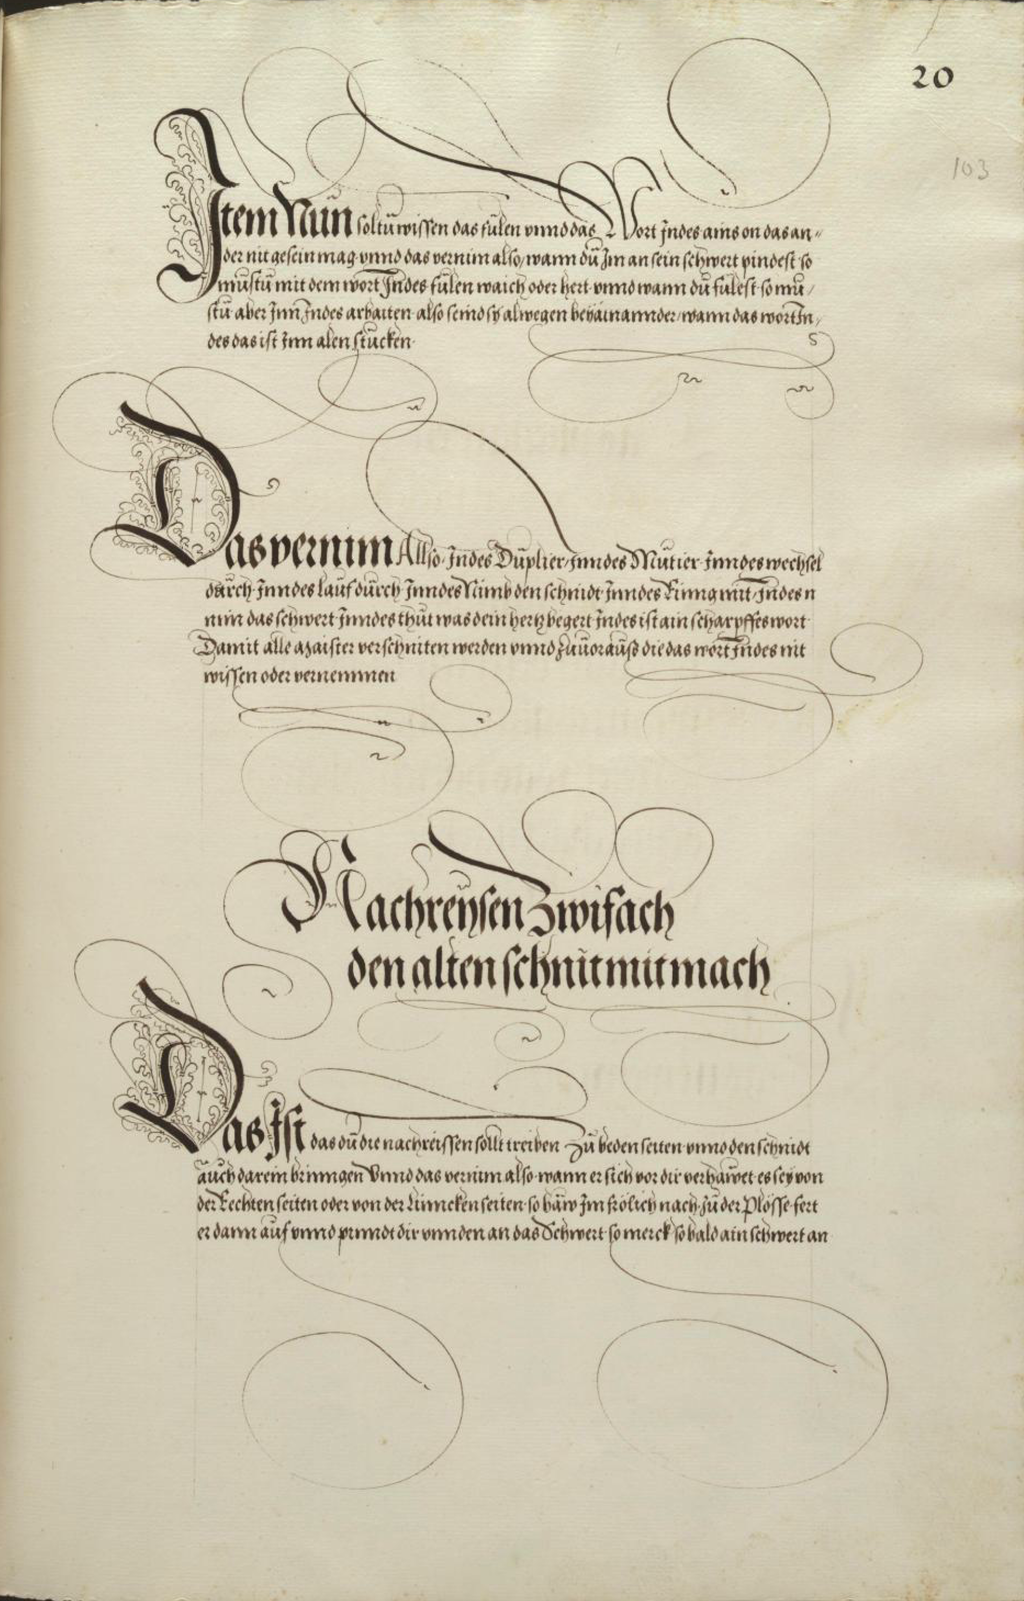 20
103
Item Nün soltü wissen das fülen vnnd das Wort Jndes ains on das an=
der nit gesein mag vnnd das vernim also, wann dü Jm an sein schwert pindest so
müstü mit dem wort Jndes fülen waich oder hert vnnd wann dü fülest so mü/
stü aber Jnn Jndes arbaiten also seind sÿ alwegen beÿainannder, wann das wort Jn/
des das ist Jnn alen stücken
Das vernim Allso Jndes Düplier Jnndes Mütier Jnndes wechsel
dürch Jnndes lauf dürch Jnndes Nimb den schnidt Jnndes Rinng mit Jndes n
nim das schwert Jnndes thüt was dein hertz begert Jndes ist ain scharpffes wort
Damit alle Maister verschniten werden vnnd züüoraüß die das wort Jndes nit
wissen oder vernemmen
Nachreÿsen Zwifach
den alten schnit mit mach
Das Jst das dü die nachreissen sollt treiben Zü beden seiten vnnd den schnidt
aüch darein brinngen Vnnd das vernim also wann er sich vor dir verhawet es seÿ von
der Rechten seiten oder von der Linncken seiten so haw Jm frölich nach zü der Plösse fert
er dann aüf vnnd pinndt dir vnnden an das Schwert so merck so bald ain schwert an